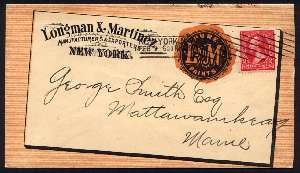 Longman & Martinez
MANUFACTURERS & EXPORTERS
NEW YORK.
PURE
L&M
PAINTS
George Smith Esq
Mattawamkeag
Maine